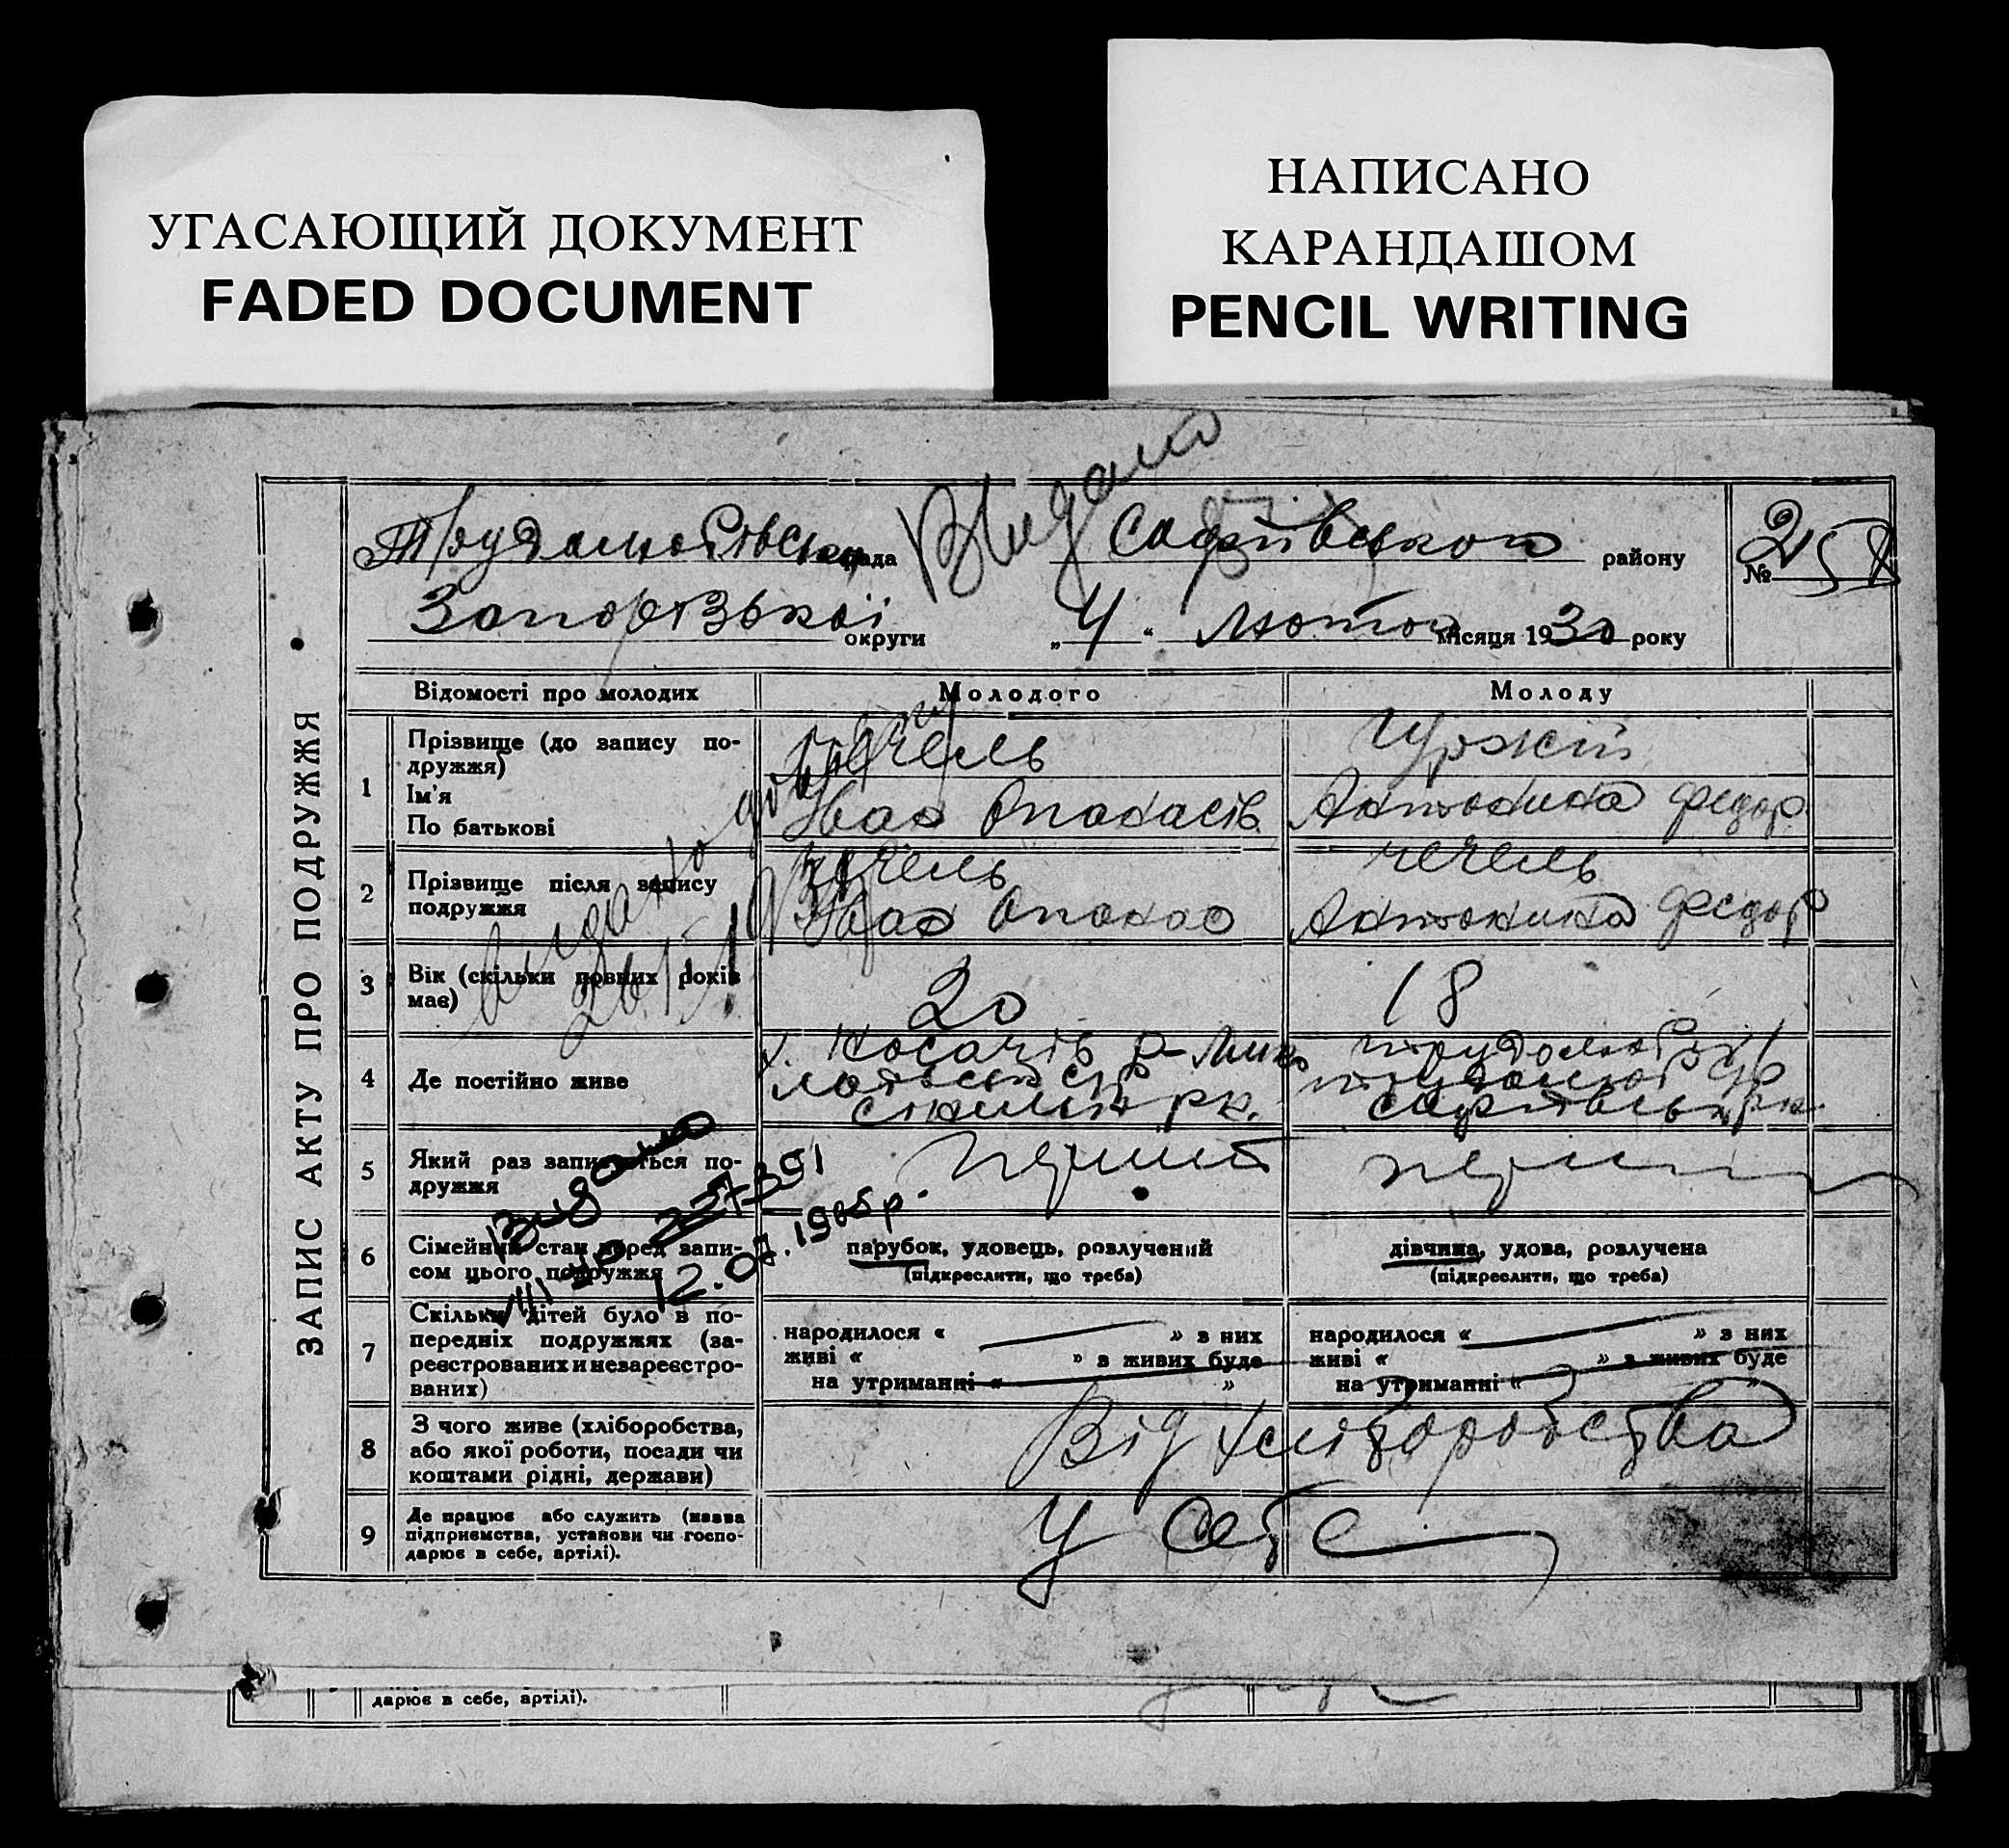 УГАСАЮЩИЙ ДОКУМЕНТ
FADED DOCUMENT
НАПИСАНО
КАРАНДАШОМ
PENCIL WRITING
ЗАПИС АКТУ ПРО ПОДРУЖЖЯ
Видано
рада Софіївського району
№ 25
Запорізької округи „ 4 “ Лютого місяця 1930 року
Відомості про молодих Молодого Молоду
1 Прізвище (до запису подружжя)
Ім'я
По батькові
Чечель
Іван Опанасів
Антонина Федор.
2 Прізвище після запису
подружжя
Чечель
Іван Опанас
Чечель
Антонина Федор
3 Вік (скільки повних років
має)
20 18
Видано
4 Де постійно живе
х. Косачів
5 Який раз записується по-
дружжя
перший
Видано
12.07.1985р.
6 Сімейний стан перед запи-
сом цього подружжя
парубок, удовець, розлучений
(підкреслити, що треба)
дівчина, удова, розлучена
(підкреслити, що треба)
7 Скільки дітей було в по-
передніх подружжях (за-
реєстрованих и незареєстро-
ваних)
народилося « » з них
живі « » з живих буде
на утриманні « »
народилося « » з них
живі « » з живих буде
на утриманні « »
8 З чого живе (хліборобства,
або якої роботи, посади чи
коштами рідні, держави)
Від хліборобства
9 Де працює або служить (назва
підприємства, установи чи госпо-
дарює в себе, артілі).
У себе
дарює в себе, артілі).